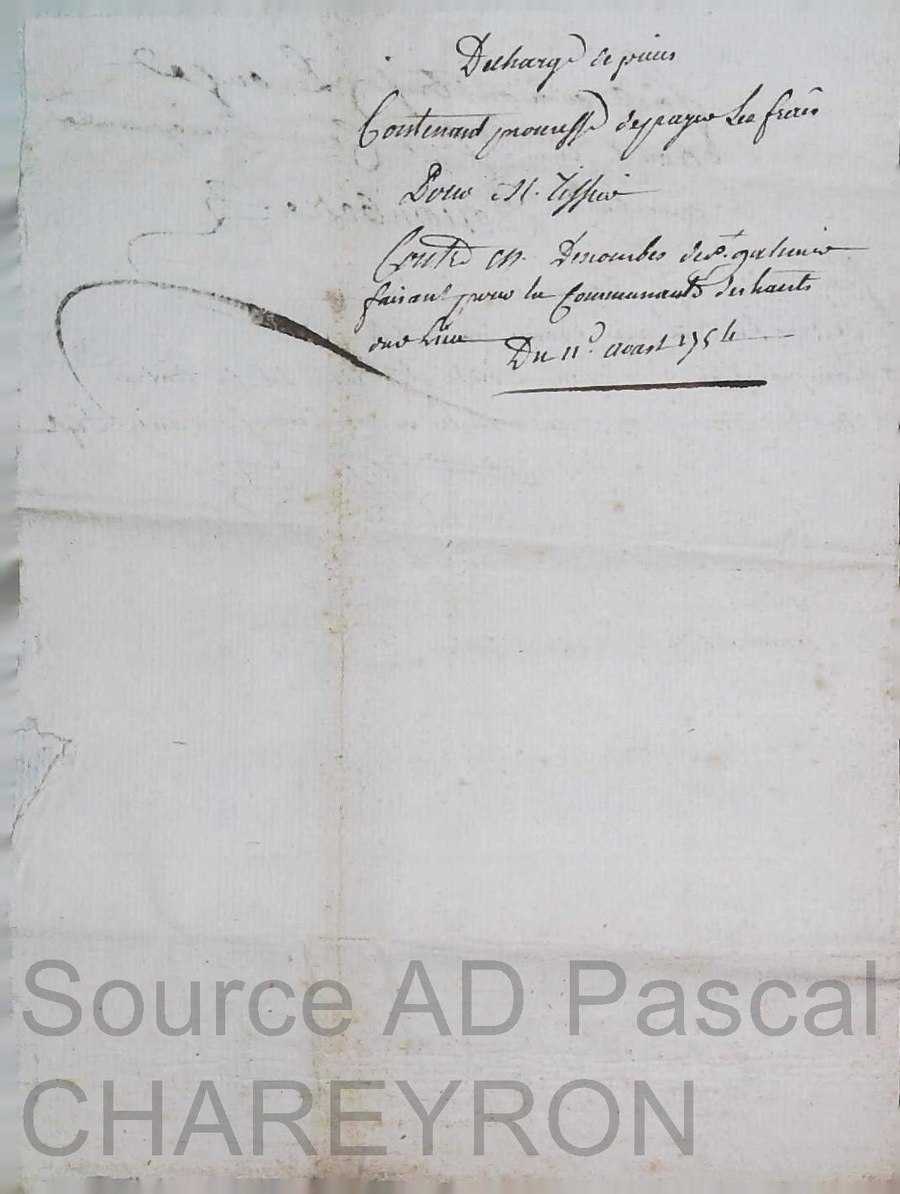 Decharge de pieces
Contenant promesse de payer Les frais
Pour M. Tissier
Contre Mr. Descombes de St. galmier
faisant pour la Communauté des hauts
du Lieu
Du 11e. aoust 1754
Source AD Pascal
CHAREYRON